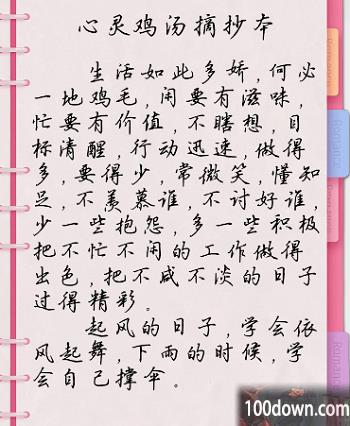 心灵鸡汤摘抄本
生活如此多娇，何必
一地鸡毛，闲要有滋味，
忙要有价值，不瞎想，目
标清醒，行动迅速，做得
多，要得少，常微笑，懂知
足，不羡慕谁，不讨好谁，
少一些抱怨，多一些积极
把不忙不闲的工作做得
出色，把不咸不淡的日子
过得精彩。
起风的日子，学会依
风起舞，下雨的时候，学
会自己撑伞。
Romance
Romance
Romance
100down.com